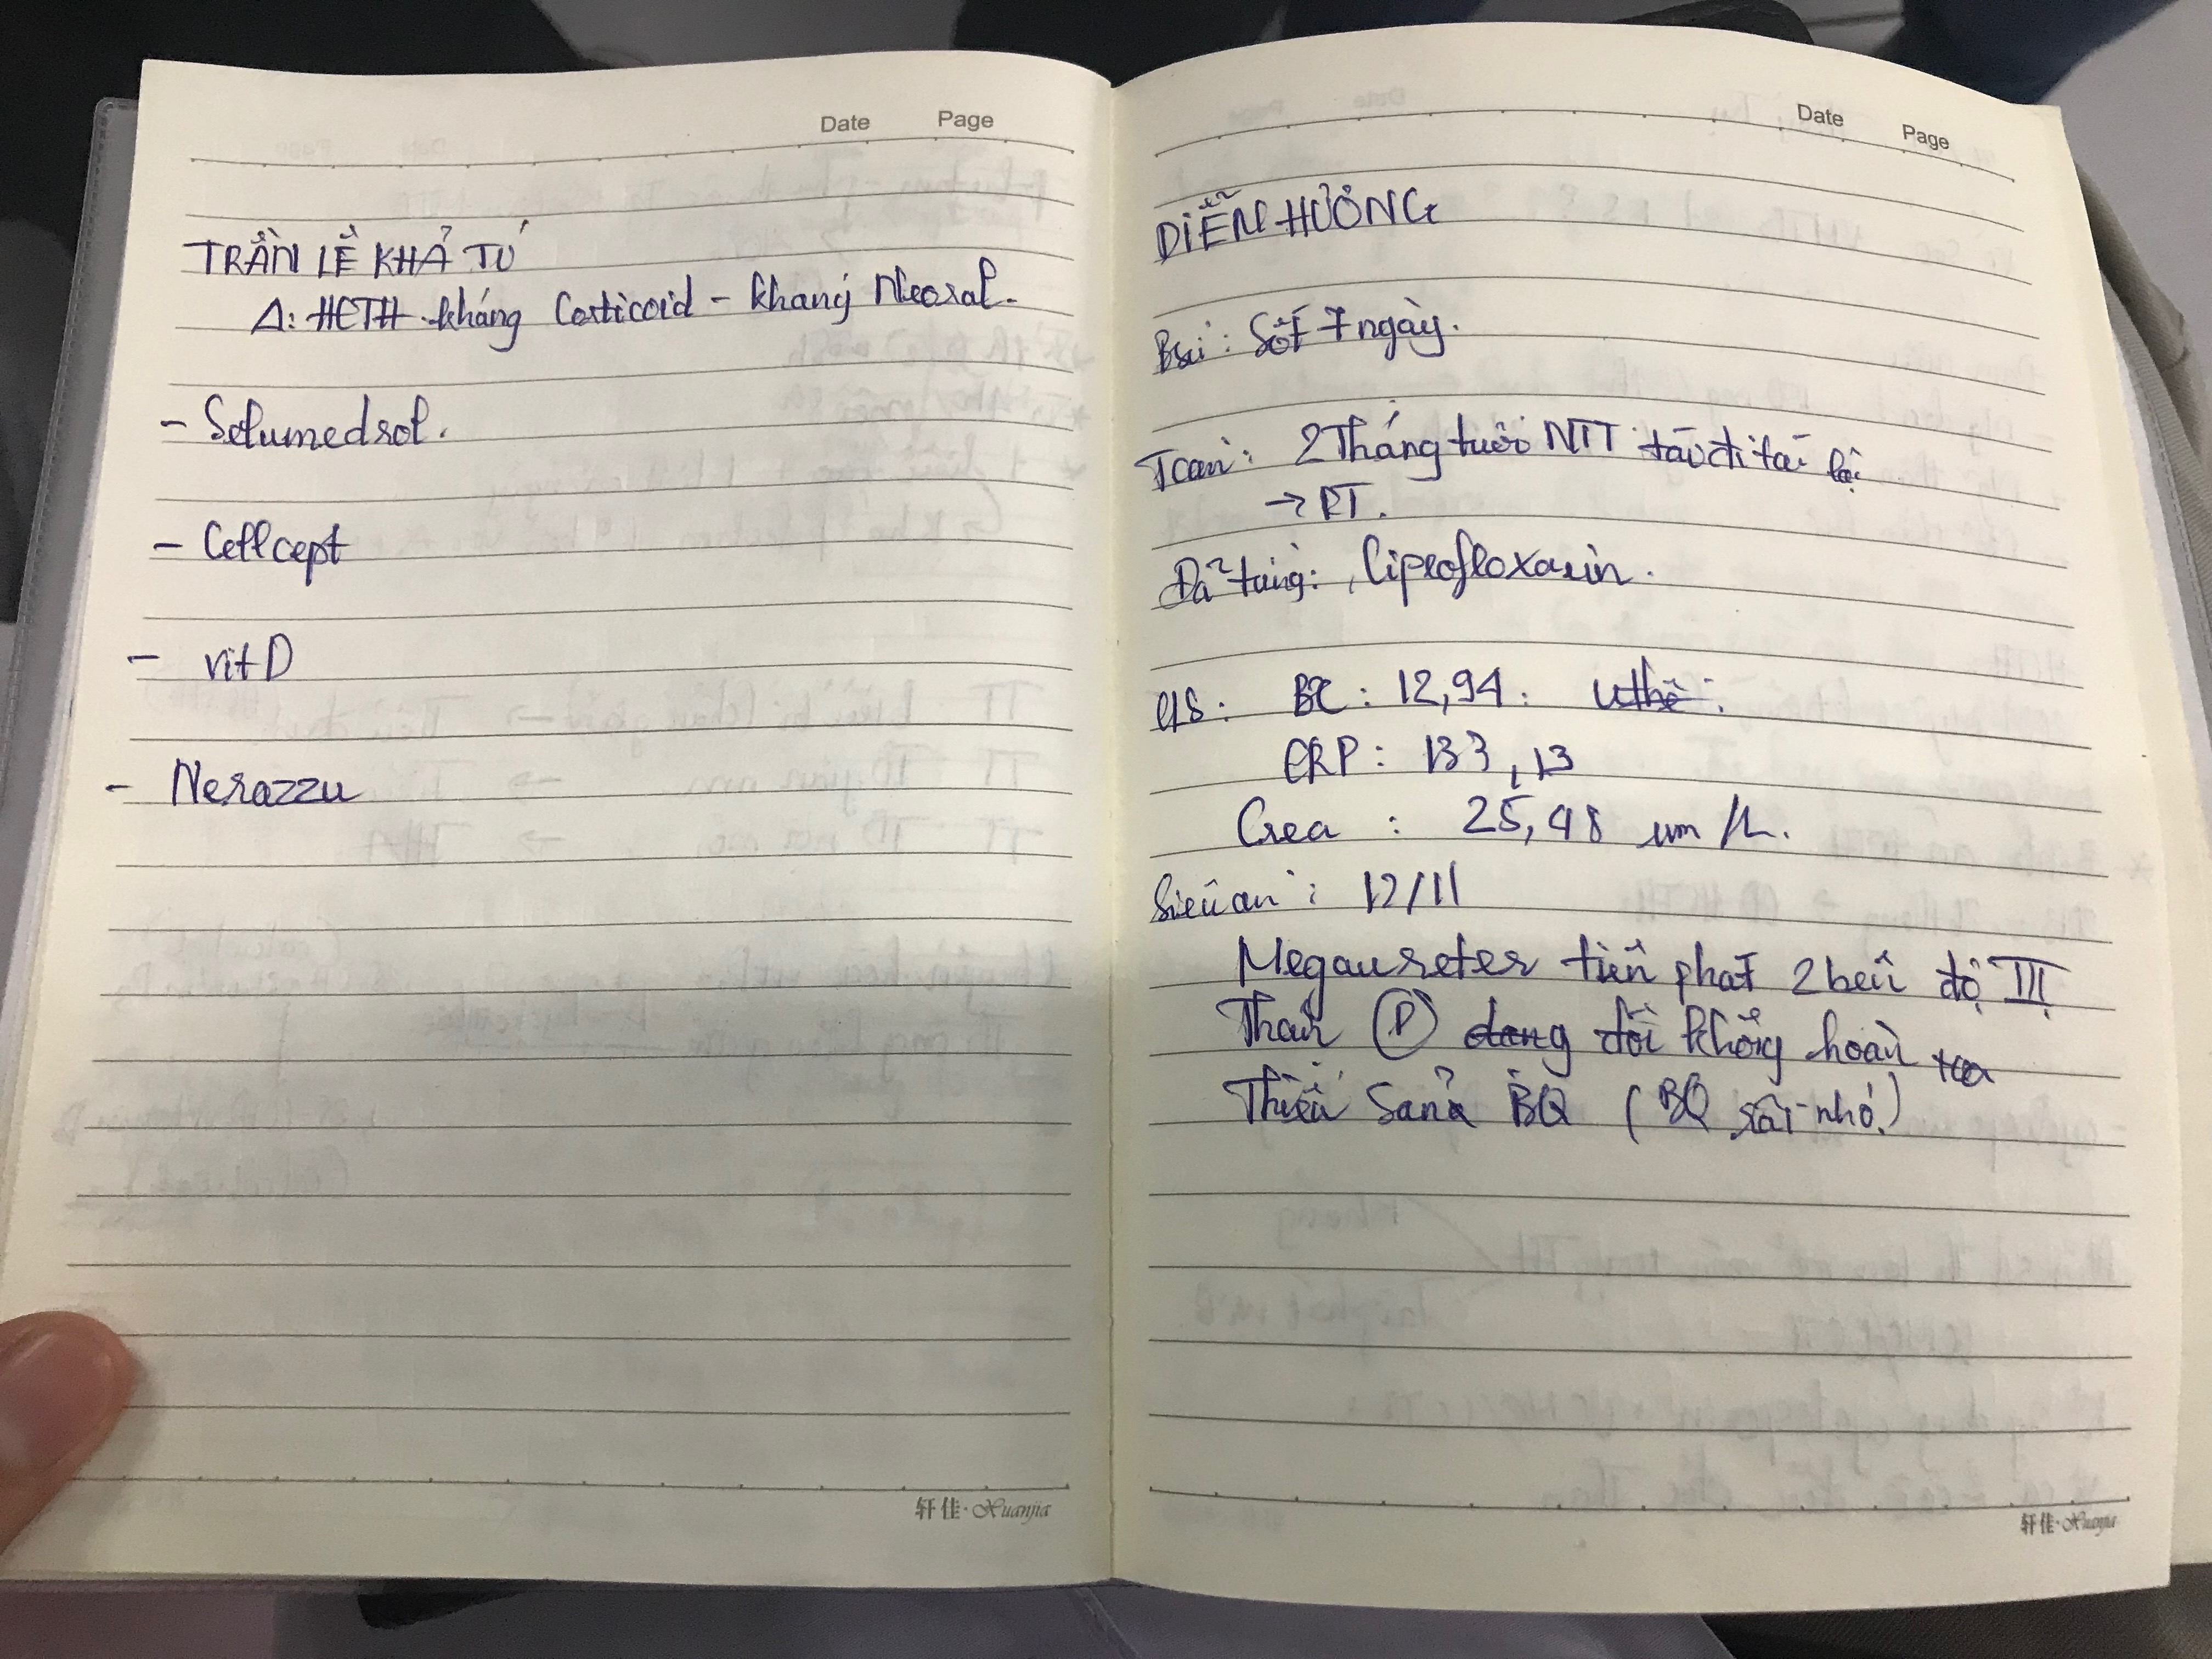 Date Page
TRẦN LÊ KHẢ TÚ
Δ: HCTH kháng Corticoid - kháng Neoral.
- Solumedrol.
- Cellcept
- vit D
- Nerazzu
轩佳·Xuanjia
Date Page
DIỄN HƯƠNG
Sốt 7 ngày.
2 Tháng tuổi NTT tái đi tái lại
→ PT.
Đã từng: Ciprofloxacin.
CLS: BC: 12,94.
CRP: 133,13
Crea: 25,48 um/L.
Siêu âm: 12/11
Megaureter tiên phát 2 bên độ III
Thận (P) đôi không hoàn toàn
Thiểu sản BQ (BQ rất nhỏ)
轩佳·Xuanjia